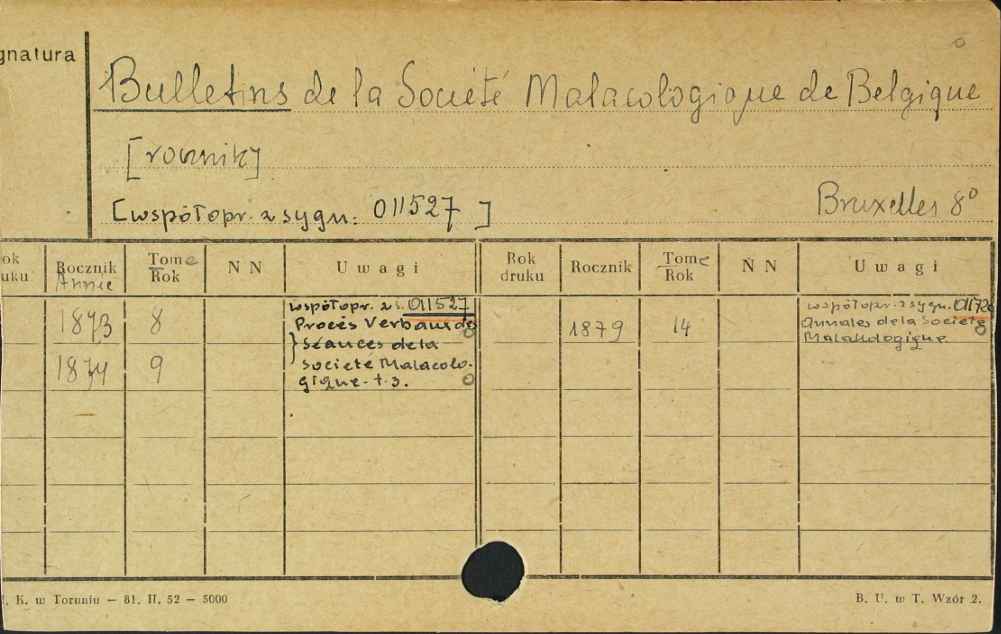 gnatura
Bulletins de la Société Malacologique de Belgique
[rocznik]
[współopr. z sygn: 011527]
Bruxelles 8°
ok uku
Rocznik Année
Tome Rok
N N
Uwagi
Rok druku
Rocznik
Tome Rok
N N
Uwagi
1873 8
współopr. z s. 011527
Procès Verbaux de
1874 9
Séances de la
Société Malacolo-
gique t. 3.
1879 14
współopr. z sygn.
Annales de la Société
Malacologique
K. w Toruniu — 81. II. 52 — 5000
B. U. w T. Wzór 2.